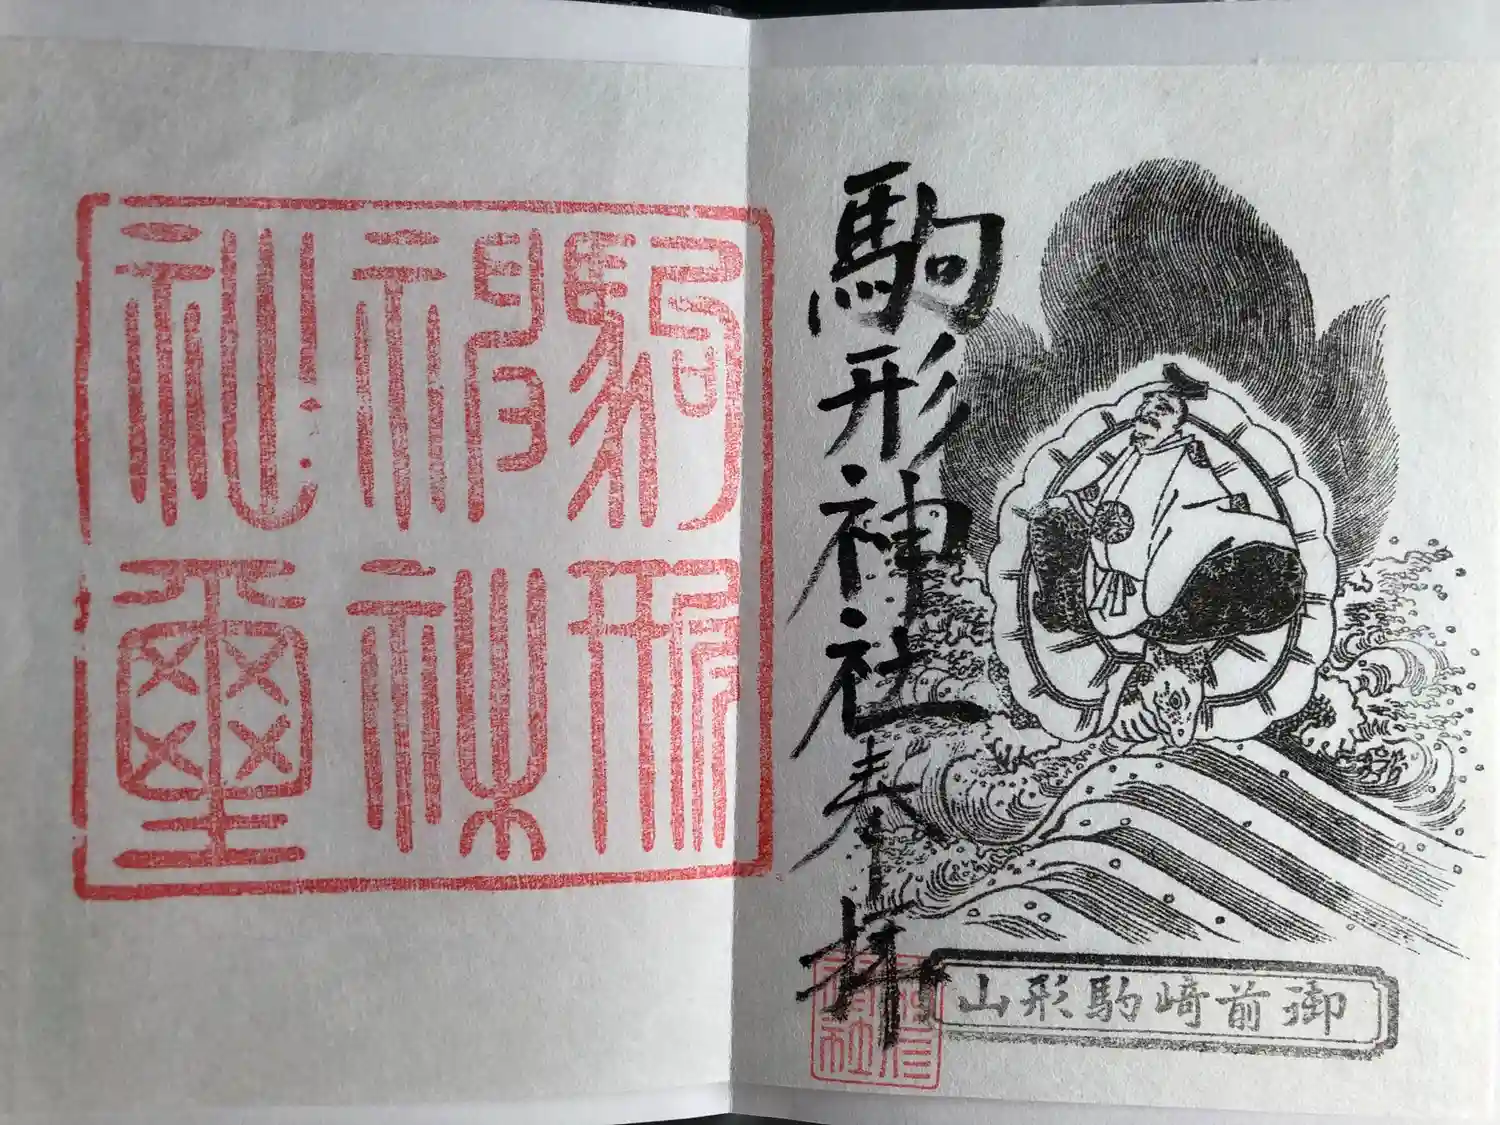 駒形神社奉拝
御前崎駒形山
駒形
神社
礼璽